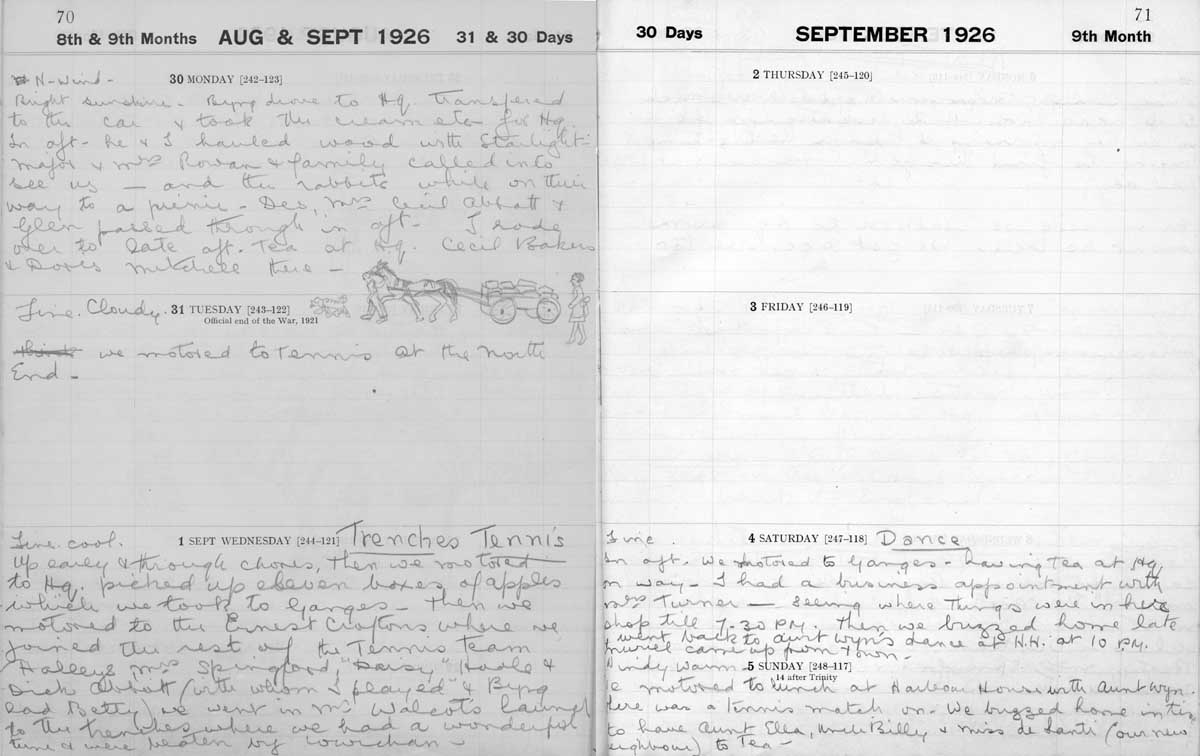 70
8th & 9th Months AUG & SEPT 1926 31 & 30 Days
N-Wind - 30 MONDAY [242-123]
Bright sunshine. Byng drove to Hq. Transfered
to the car & took the cream etc for Hq.
In aft- he & I hauled wood with Starlight-
major & mrs Rowan & family called into
see us - and the rabbits while on their
way to a picnic - Des, Mrs Cecil Abbott &
Glen passed through in aft- I rode
over to late aft. Tea at Hq. Cecil Bakers
& Doris Mitchell there -
Fine. Cloudy. 31 TUESDAY [243-122]
Official end of the War, 1921
we motored to Tennis at the North
End -
Fine. cool. 1 SEPT WEDNESDAY [244-121] Trenches Tennis
up early & through chores, then we motored
to Hq. picked up eleven boxes of apples
which we took to Ganges - then we
motored to the Ernest Croftons where we
joined the rest of the Tennis team
Halleys, Mrs Springford, "Daisy" Hoole &
Dick Abbott (with whom I played & Byng
had Betty) we went in Mr Walcots launch
to the trenches where we had a wonderful
time & were beaten by Cowichan -
71
30 Days SEPTEMBER 1926 9th Month
2 THURSDAY [245-120]
3 FRIDAY [246-119]
Fine. 4 SATURDAY [247-118] Dance
In aft. we motored to Ganges - having Tea at Hq
on way - I had a business appointment with
mrs Turner - seeing where things were in her
shop till 7-30 P.M. Then we buzzed home late
& went back to aunt Wyn's dance at H.H. at 10 P.M.
muriel came up from town -
Windy Warm - 5 SUNDAY [248-117]
14 after Trinity
We motored to lunch at Harbour House with Aunt Wyn.
there was a Tennis match on - We buzzed home in time
to have Aunt Ella, Uncle Billy & miss de Santi (our new
neighbour) to Tea -